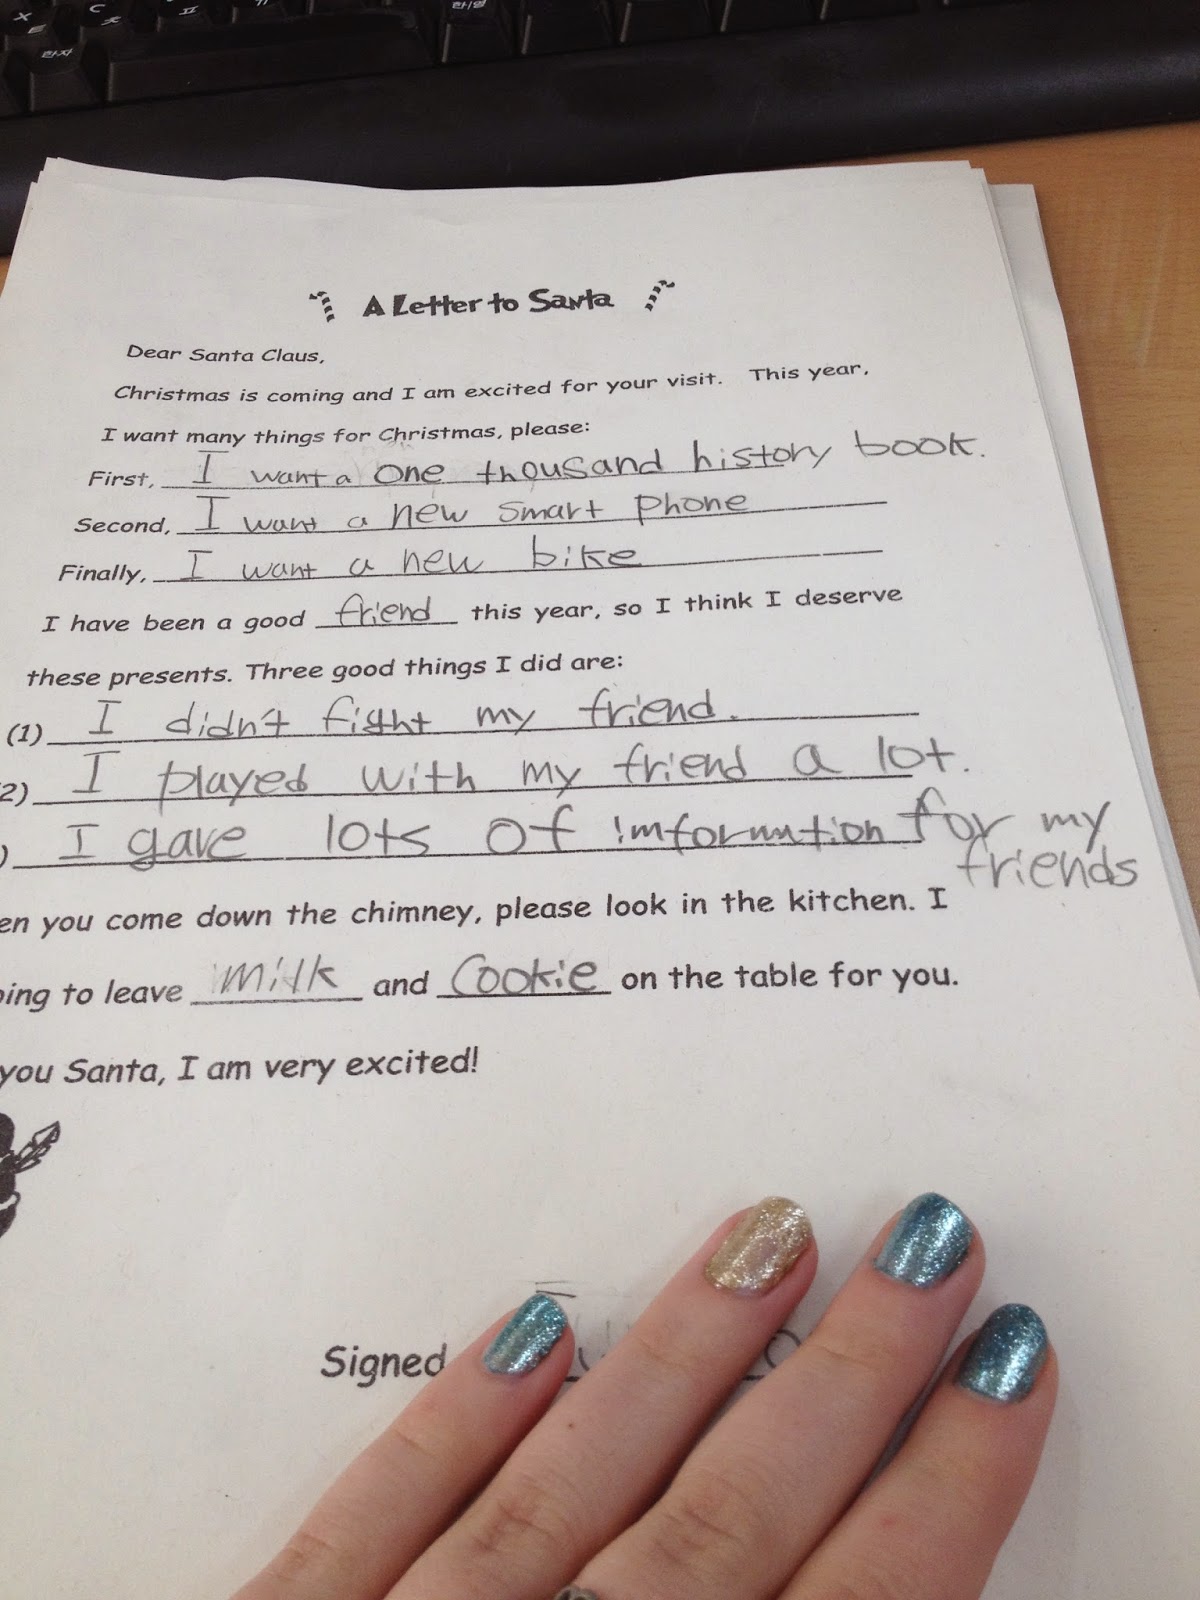 한자
한/영
A Letter to Santa
Dear Santa Claus,
Christmas is coming and I am excited for your visit. This year,
I want many things for Christmas, please:
First, I want a one thousand history book.
Second, I want a new smart phone
Finally, I want a new bike
I have been a good friend this year, so I think I deserve
these presents. Three good things I did are:
(1) I didn't fight my friend.
2) I played with my friend a lot.
) I gave lots of imformation for my
friends
en you come down the chimney, please look in the kitchen. I
oing to leave milk and cookie on the table for you.
you Santa, I am very excited!
Signed